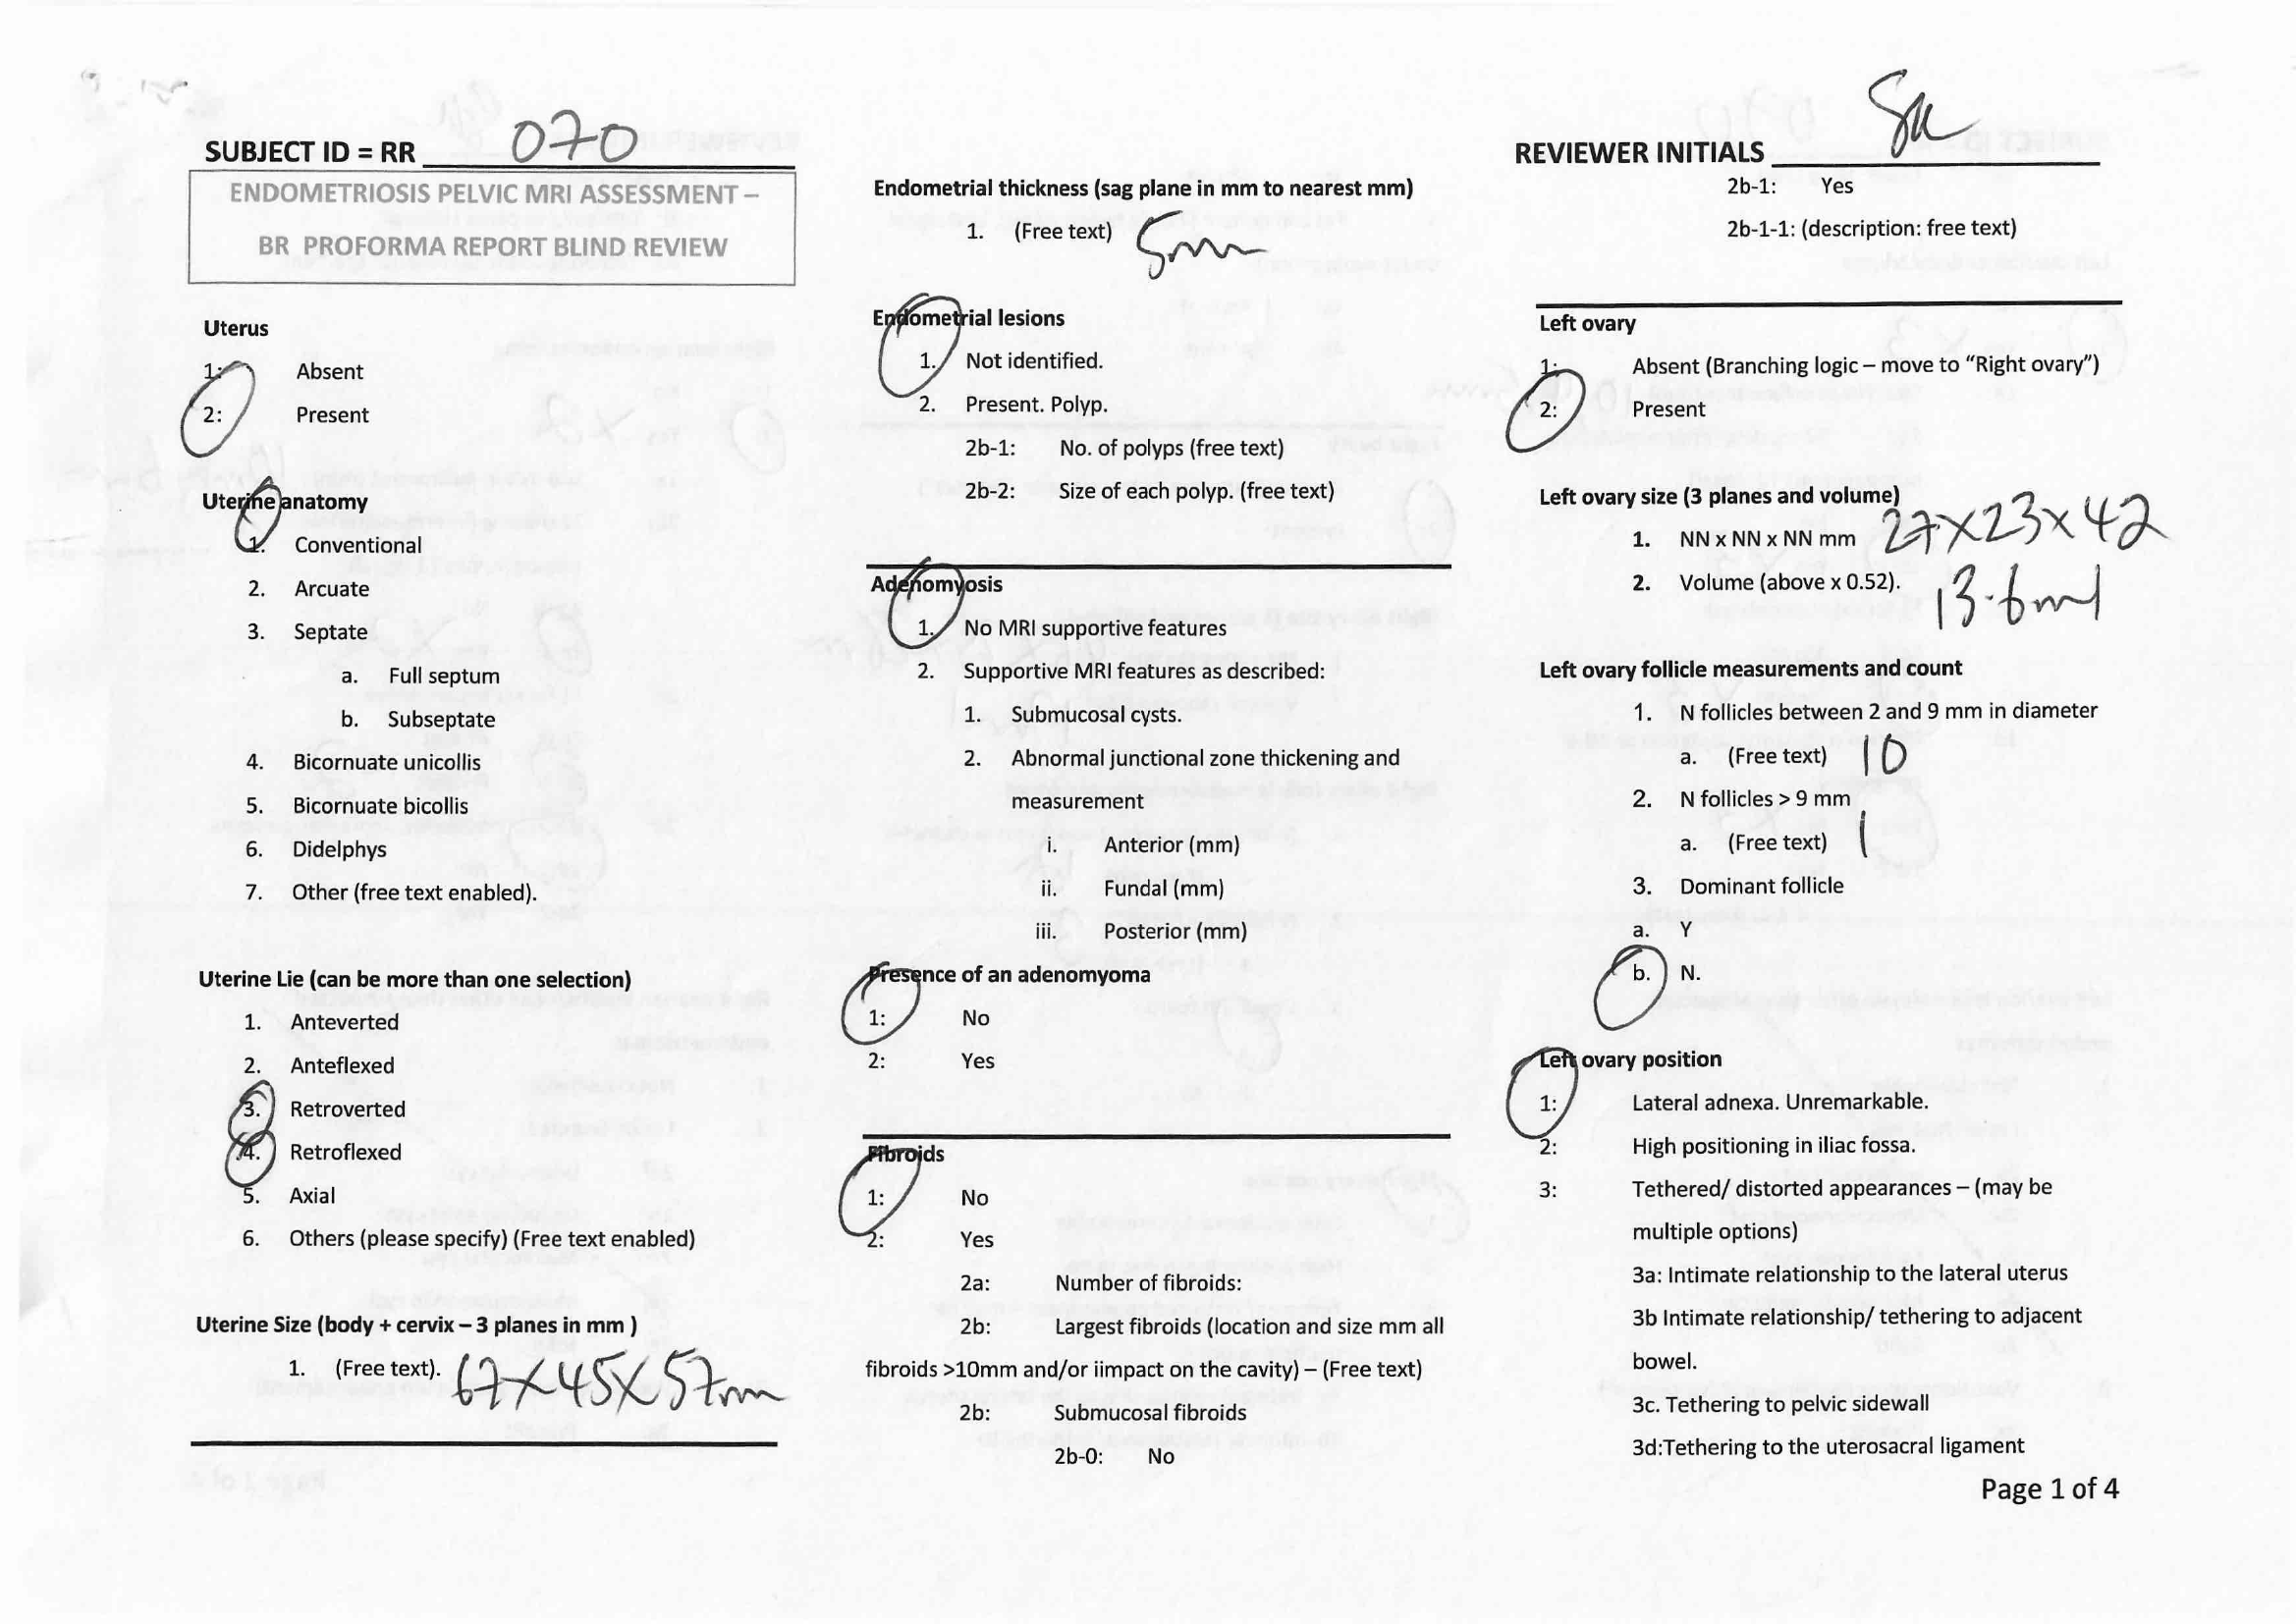 SUBJECT ID = RR 070
ENDOMETRIOSIS PELVIC MRI ASSESSMENT –
BR PROFORMA REPORT BLIND REVIEW
Uterus
1: Absent
2: Present
Uterine anatomy
1. Conventional
2. Arcuate
3. Septate
a. Full septum
b. Subseptate
4. Bicornuate unicollis
5. Bicornuate bicollis
6. Didelphys
7. Other (free text enabled).
Uterine Lie (can be more than one selection)
1. Anteverted
2. Anteflexed
3. Retroverted
4. Retroflexed
5. Axial
6. Others (please specify) (Free text enabled)
Uterine Size (body + cervix – 3 planes in mm )
1. (Free text). 67X45X57mm
Endometrial thickness (sag plane in mm to nearest mm)
1. (Free text) 5mm
Endometrial lesions
1. Not identified.
2. Present. Polyp.
2b-1: No. of polyps (free text)
2b-2: Size of each polyp. (free text)
Adenomyosis
1. No MRI supportive features
2. Supportive MRI features as described:
1. Submucosal cysts.
2. Abnormal junctional zone thickening and
measurement
i. Anterior (mm)
ii. Fundal (mm)
iii. Posterior (mm)
Presence of an adenomyoma
1: No
2: Yes
Fibroids
1: No
2: Yes
2a: Number of fibroids:
2b: Largest fibroids (location and size mm all
fibroids >10mm and/or iimpact on the cavity) – (Free text)
2b: Submucosal fibroids
2b-0: No
REVIEWER INITIALS
2b-1: Yes
2b-1-1: (description: free text)
Left ovary
1: Absent (Branching logic – move to “Right ovary”)
2: Present
Left ovary size (3 planes and volume)
1. NN x NN x NN mm 27X23X42
2. Volume (above x 0.52). 13.6ml
Left ovary follicle measurements and count
1. N follicles between 2 and 9 mm in diameter
a. (Free text) 10
2. N follicles > 9 mm
a. (Free text) 1
3. Dominant follicle
a. Y
b. N.
Left ovary position
1: Lateral adnexa. Unremarkable.
2: High positioning in iliac fossa.
3: Tethered/ distorted appearances – (may be
multiple options)
3a: Intimate relationship to the lateral uterus
3b Intimate relationship/ tethering to adjacent
bowel.
3c. Tethering to pelvic sidewall
3d:Tethering to the uterosacral ligament
Page 1 of 4